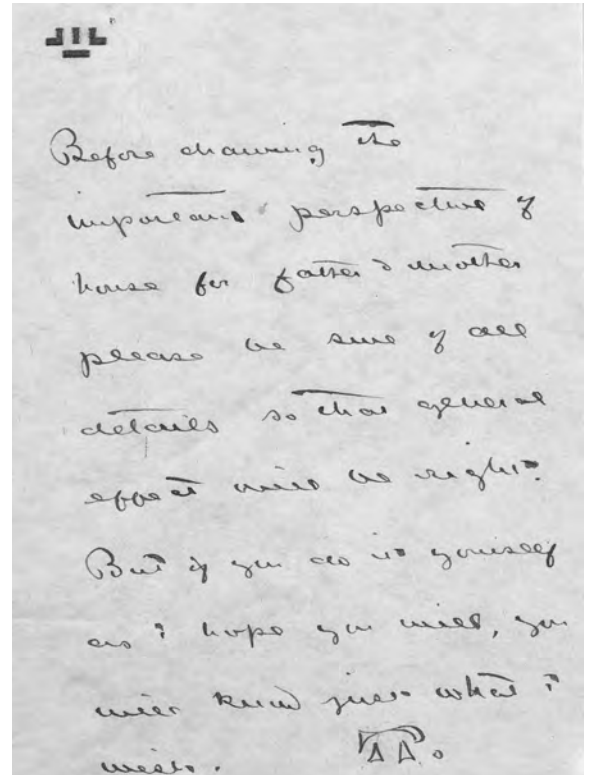 Before drawing the
important perspective of
house for father & mother
please be sure of all
details so that general
effect will be right.
But if you do it yourself
as I hope you will, you
will know just what I